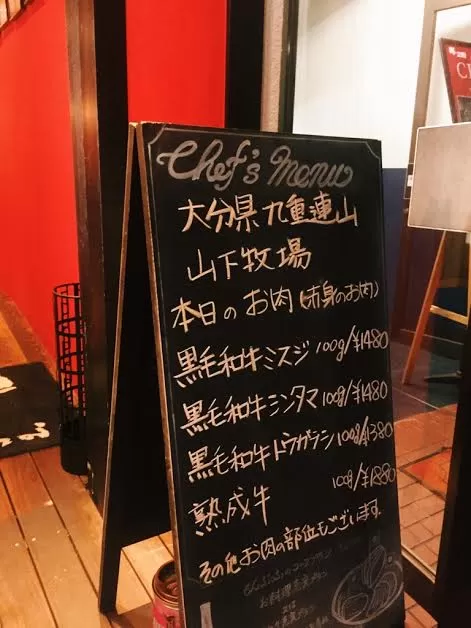 Chef's Menu
大分県 九重連山
山下牧場
本日の お肉 (赤身のお肉)
黒毛和牛ミスジ 100g/¥1480
黒毛和牛シンタマ 100g/¥1480
黒毛和牛トウガラシ 100g/¥1380
熟成牛 100g/¥1880
その他お肉の部位もございます。